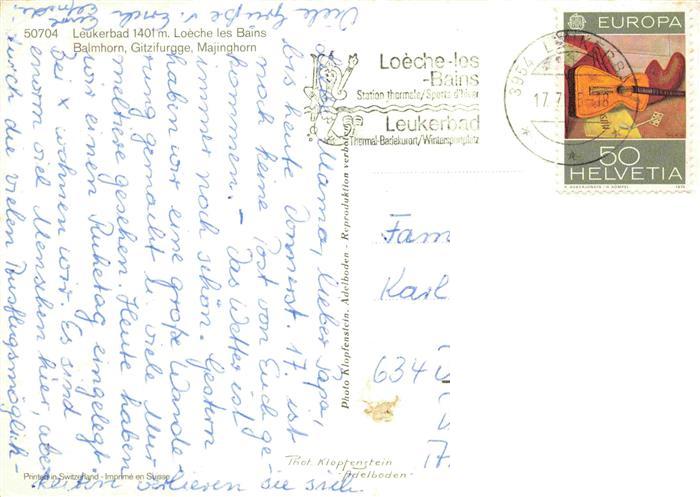 50704 Leukerbad 1401 m. Loèche les Bains
Balmhorn, Gitzifurgge, Majinghorn
Liebe Mama, lieber Papa,
bis heute Donnerst. 17. ist
noch keine Post von Euch ge-
kommen. - Das Wetter ist
immer noch schön. Gestern
haben wir eine große Wande-
rung gemacht u. viele Mur-
meltiere gesehen. Heute haben
wir einen Ruhetag eingelegt.
Bei x wohnen wir. Es sind
enorm viel Menschen hier, aber
durch die vielen Ausflugsmöglich-
keiten verlieren sie sich.
Viele Grüße v.
Loèche-les
-Bains
Station thermale/Sports d'hiver
Leukerbad
Thermal-Badekurort/Wintersportplatz
3954
17.7
18
EUROPA
50
HELVETIA
1975
Fam
Karl
634
17.
Photo Klopfenstein, Adelboden - Reproduktion verboten
Phot. Klopfenstein
Adelboden
Printed in Switzerland - Imprimé en Suisse